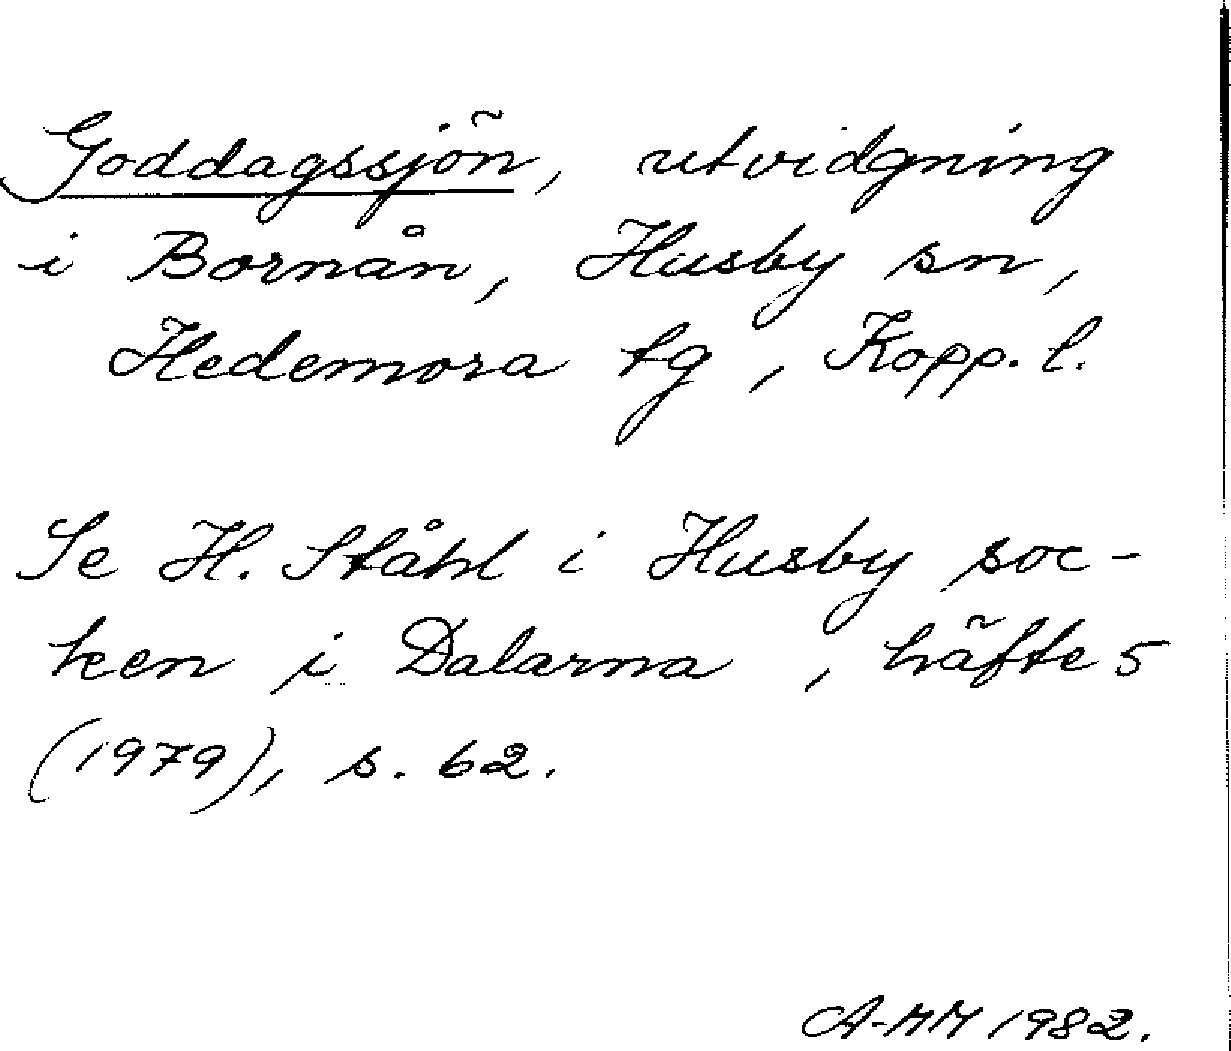 Goddagssjön, utvidgning
i Bornån, Husby sn,
Hedemora tg, Kopp. l.
Se H. Ståhl i Husby soc-
ken i Dalarna, häfte 5
(1979), s. 62.
A-MM 1982.